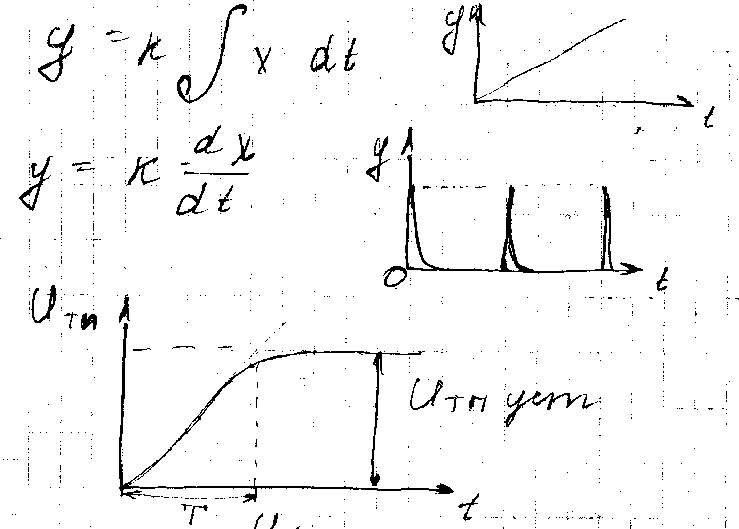 y = к ∫ x dt
y
t
y = к dx/dt
y
0
t
Uтп
Uтп уст
T
t